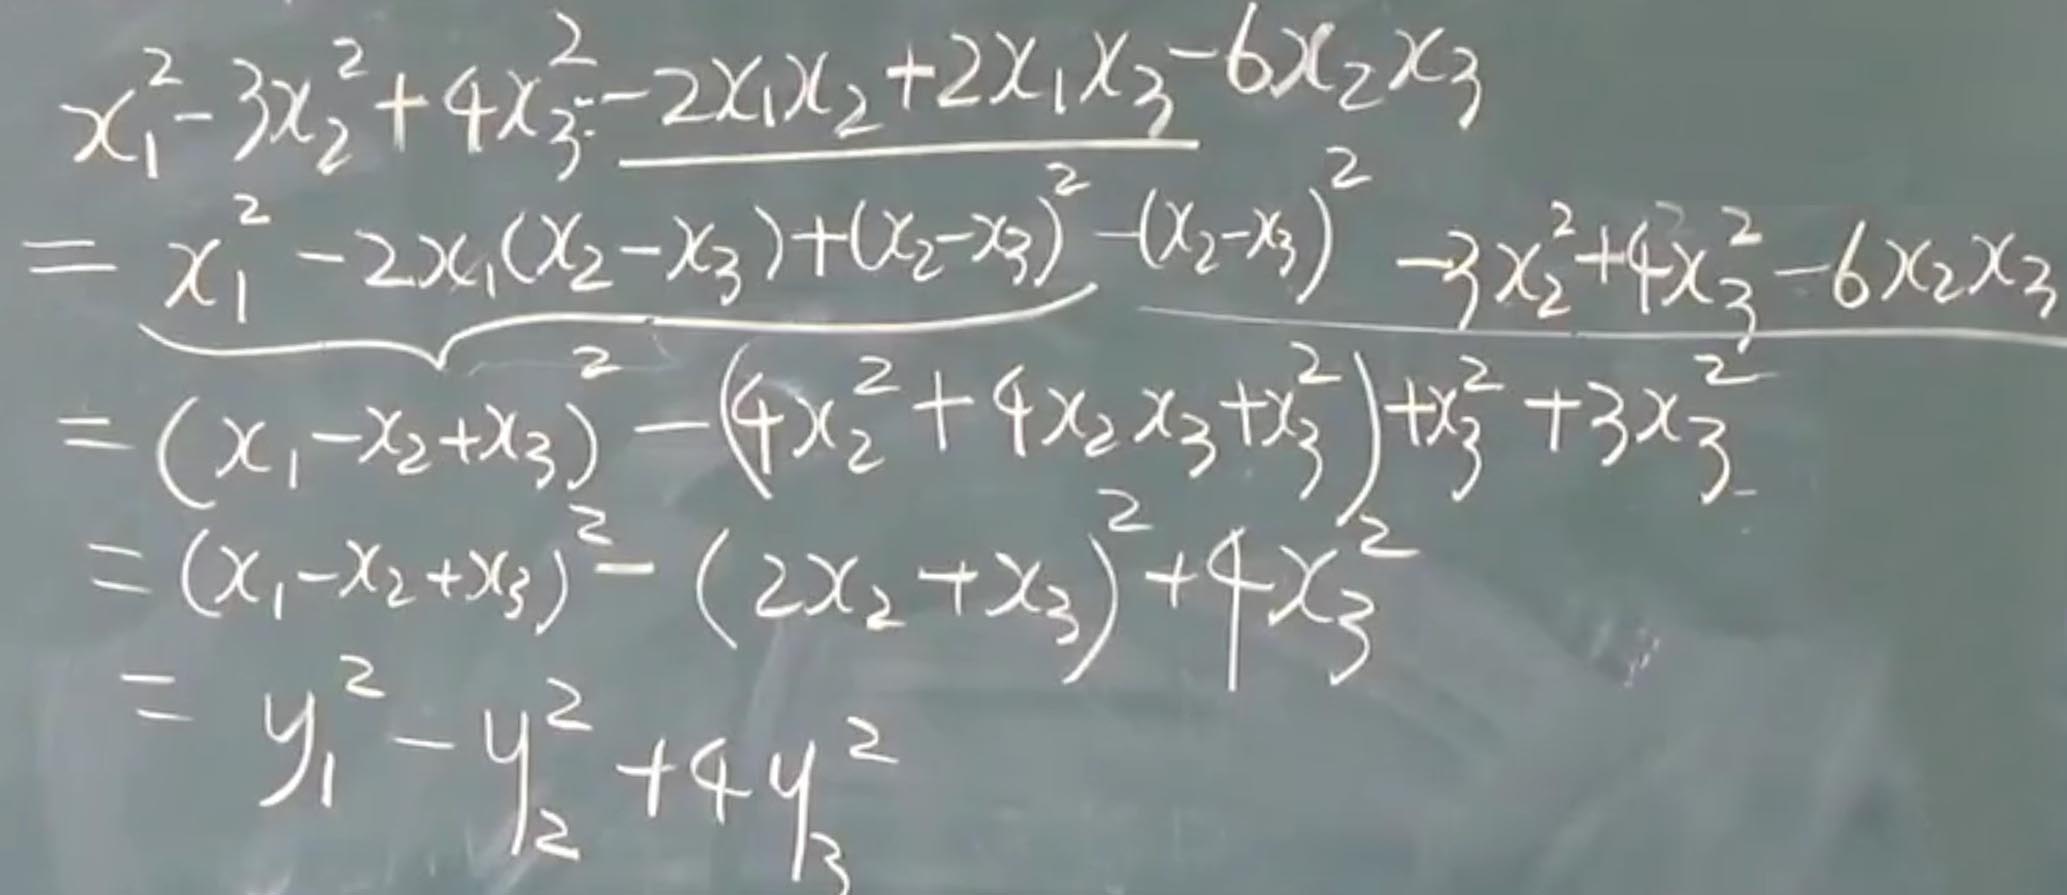 x₁² - 3x₂² + 4x₃² - 2x₁x₂ + 2x₁x₃ - 6x₂x₃
= x₁² - 2x₁(x₂ - x₃) + (x₂ - x₃)² - (x₂ - x₃)² - 3x₂² + 4x₃² - 6x₂x₃
= (x₁ - x₂ + x₃)² - (4x₂² + 4x₂x₃ + x₃²) + x₃² + 3x₃²
= (x₁ - x₂ + x₃)² - (2x₂ + x₃)² + 4x₃²
= y₁² - y₂² + 4y₃²